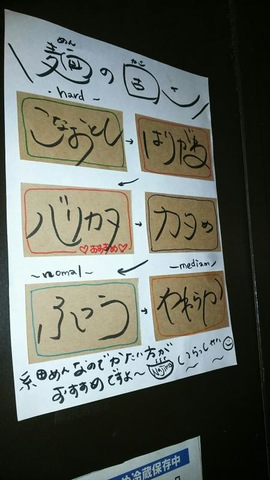 めん かた
麺の固さ
- hard -
こなおとし → はりがね
バリカタ → カタめ
♡おすすめ♡
~nomal~ - mediam -
ふつう → やわらか
糸田めんなのでかたい方が
おすすめですよ〜
いらっしゃい
冷蔵保存中